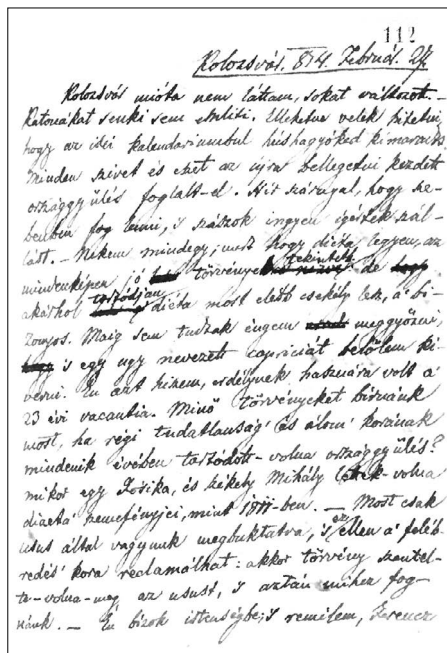 112
Kolozsvár. 834. Február. 27.
Kolozsvár mióta nem láttam, sokat változott. –
Katonákat senki sem említi. Elhitetné velek hitetni,
hogy az idei kalendariumbul húshagyókedd kimaradt.
Minden szivet és eszet az újra bellegelni kezdett
országgyűlés foglalt-el. Hír szárnyal, hogy Sze-
benben fog lenni, 's szászok ingyen igérték szál-
lást. – Nekem mindegy; mert hogy diéta legyen, az
mindenképen jó törvény tekintet de
akárhol tartódjon diéta most elébb csekély lesz, a' bi-
zonyos. Maig sem tudtak engem meggyőzni,
's egy ugy nevezett capriciát belőlem ki
verni. Én azt hiszem, erdélynek hasznára volt a'
23 évi vacantia. Minő törvényeket birnánk
most, ha régi tudatlanság' és álom' korának
mindenik évében tartódott-volna országgyűlés?
mikor egy Jósika, és székely Mihály lettek-volna
diaeta' nemefényjei, mint 1811-ben. – Most csak
usus által vagyunk megbuktatva, 's ez ellen a' feléb-
redés' kora reclamálhat: akkor törvény szentel-
te-volna-meg az usust, 's aztán mihez fog-
nánk. – Én bizok istenségbe, 's remélem, Ferencz